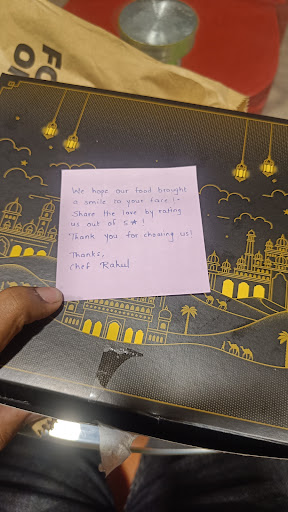 FO
ON
We hope our food brought
a smile to your face!
Share the love by rating
us out of 5★!
Thank you for choosing us!
Thanks,
Chef Rahul